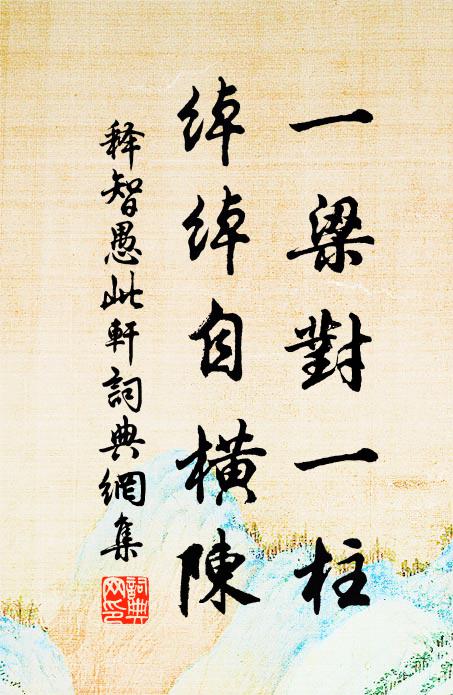 一梁對一柱
綽綽自橫陳
释智愚此軒詞典網集
詞典
网印